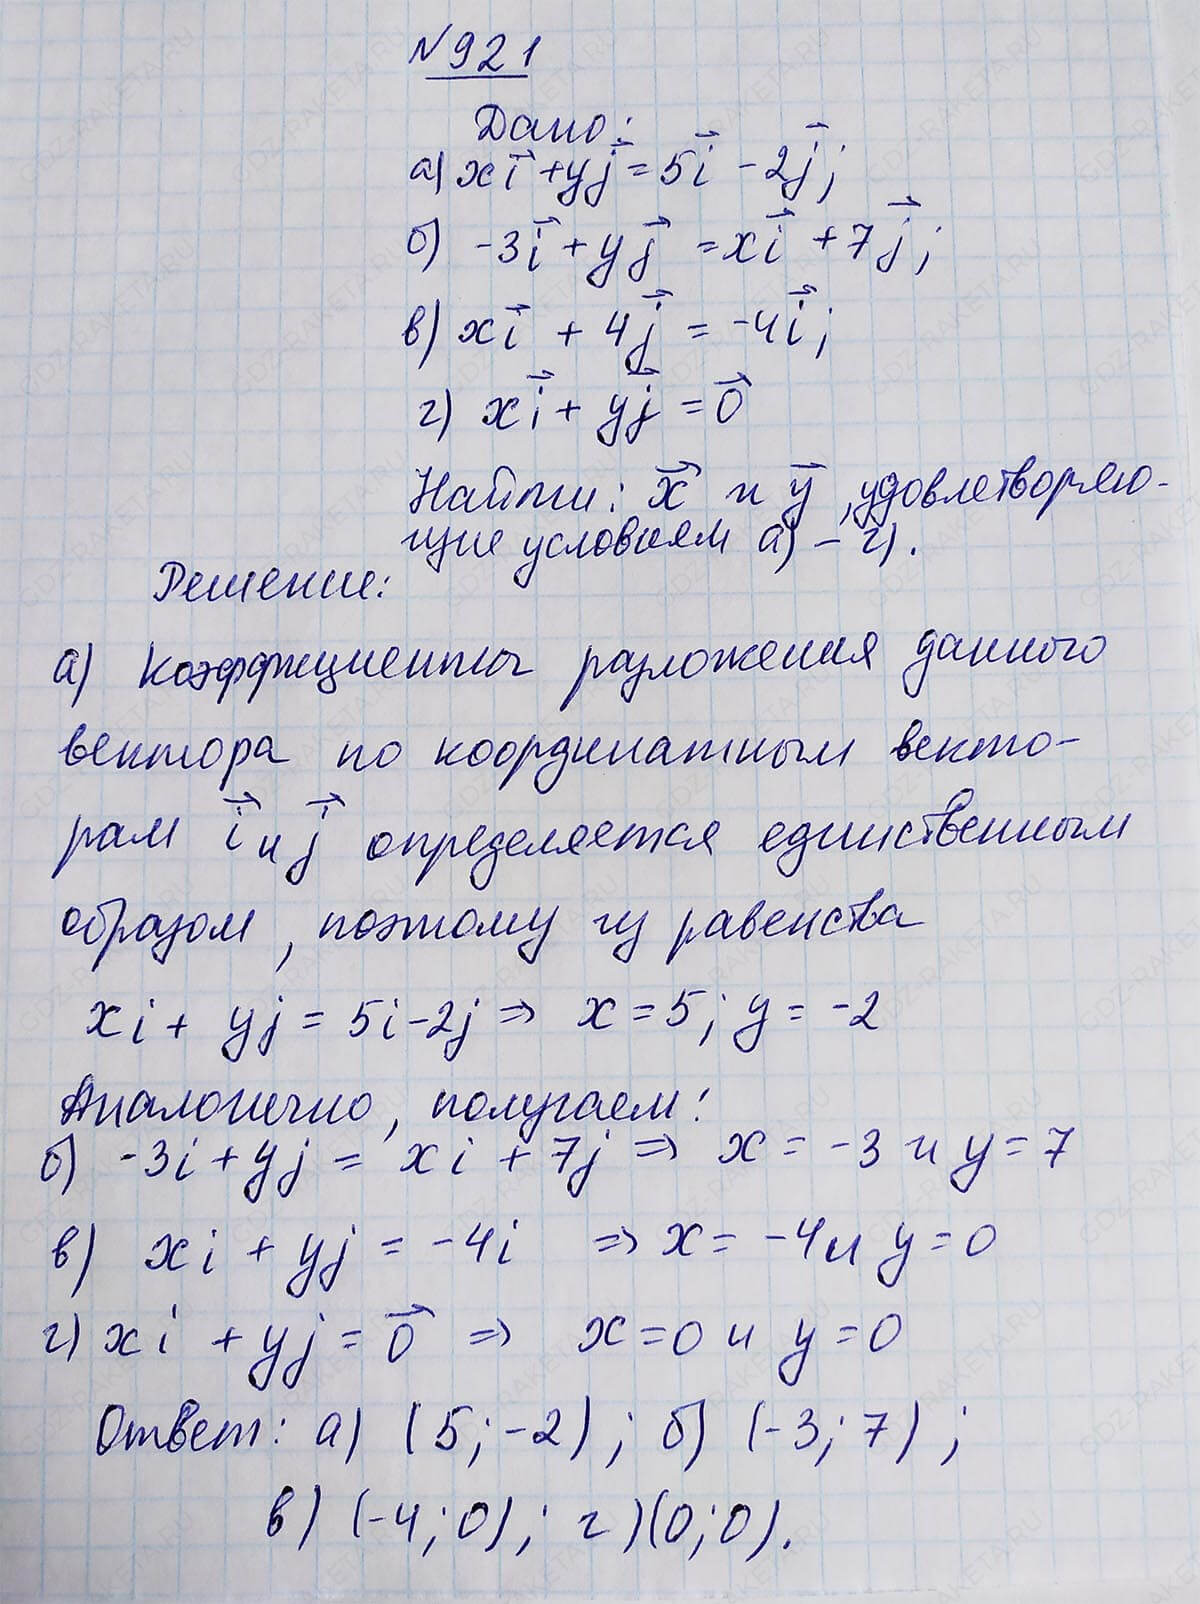 №921
Дано:
а) xi⃗ + yj⃗ = 5i⃗ - 2j⃗;
б) -3i⃗ + yj⃗ = xi⃗ + 7j⃗;
в) xi⃗ + 4j⃗ = -4i⃗;
г) xi⃗ + yj⃗ = 0⃗
Найти: x⃗ и y⃗, удовлетворяю-
щие условиям а) - г).
Решение:
а) Коэффициенты разложения данного
вектора по координатным векто-
рам i⃗ и j⃗ определяется единственным
образом, поэтому из равенства
xi + yj = 5i - 2j ⇒ x = 5; y = -2
Аналогично, получаем:
б) -3i + yj = xi + 7j ⇒ x = -3 и y = 7
в) xi + yj = -4i ⇒ x = -4 и y = 0
г) xi + yj = 0⃗ ⇒ x = 0 и y = 0
Ответ: а) (5; -2); б) (-3; 7);
в) (-4; 0); г) (0; 0).
GDZ-RAKETA.RU